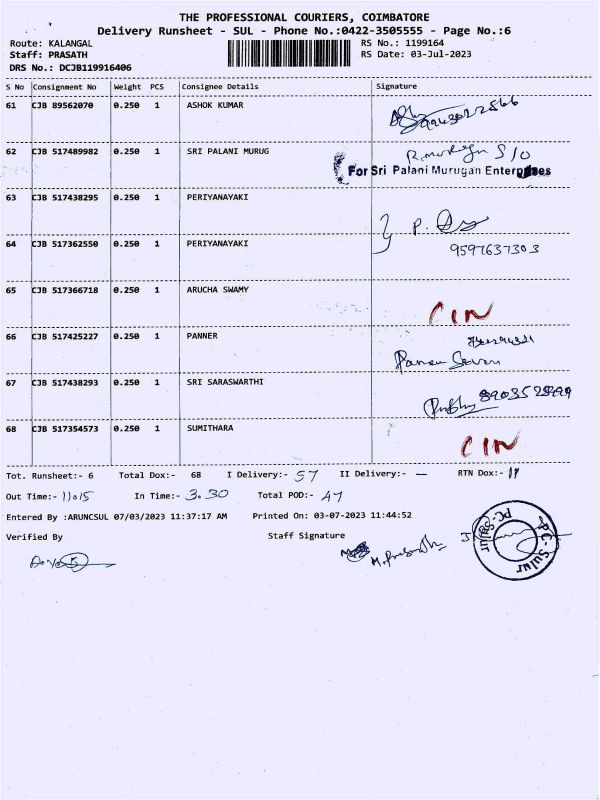 THE PROFESSIONAL COURIERS, COIMBATORE
Delivery Runsheet - SUL - Phone No.:0422-3505555 - Page No.:6
Route: KALANGAL RS No.: 1199164
Staff: PRASATH RS Date: 03-Jul-2023
DRS No.: DCJB119916406
S No Consignment No Weight PCS Consignee Details Signature
61 CJB 89562070 0.250 1 ASHOK KUMAR
62 CJB 517489982 0.250 1 SRI PALANI MURUG
For Sri Palani Murugan Enterprises
63 CJB 517438295 0.250 1 PERIYANAYAKI
64 CJB 517362550 0.250 1 PERIYANAYAKI 9597637303
65 CJB 517366718 0.250 1 ARUCHA SWAMY CIN
66 CJB 517425227 0.250 1 PANNER
67 CJB 517438293 0.250 1 SRI SARASWARTHI
68 CJB 517354573 0.250 1 SUMITHARA CIN
Tot. Runsheet:- 6 Total Dox:- 68 I Delivery:- 57 II Delivery:- — RTN Dox:- 11
Out Time:- 11.15 In Time:- 3.30 Total POD:- 47
Entered By :ARUNCSUL 07/03/2023 11:37:17 AM Printed On: 03-07-2023 11:44:52
Verified By Staff Signature
M. Prasath
PC-Sulur